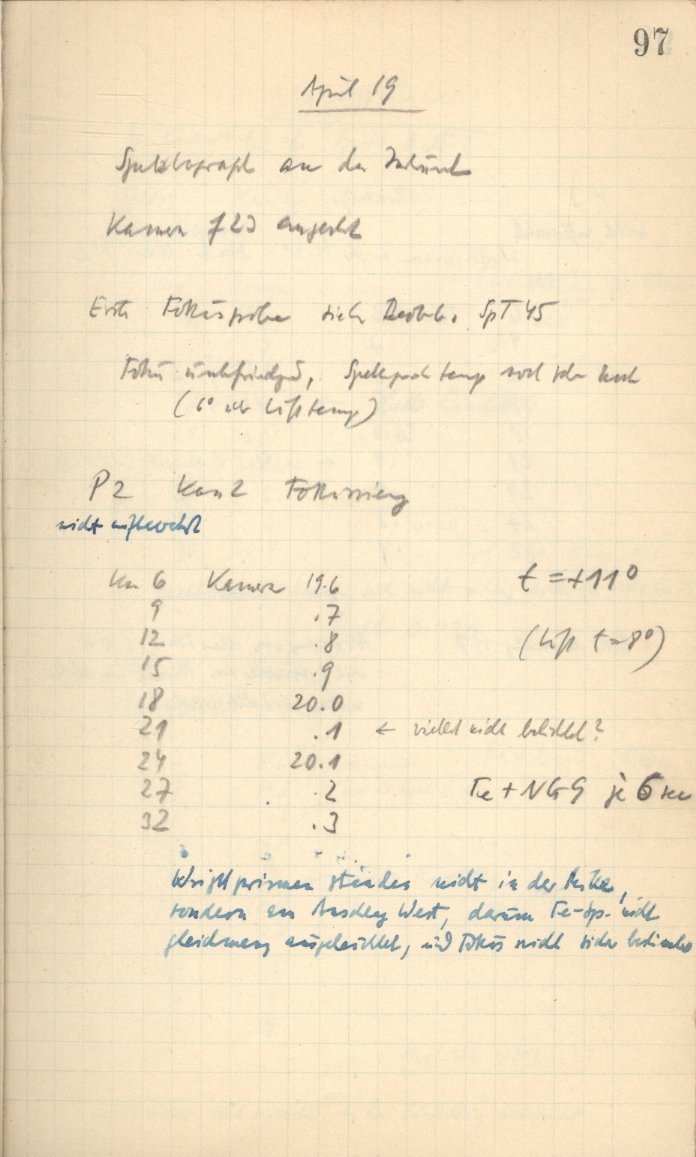 97
April 19
Spektrograph an der
Kamera f 23 angesetzt
Erste Fokusprobe siehe Beob. SpT 45
Fokus unbefriedigend, Spektrographtemp noch sehr hoch
(6° über Lufttemp)
P2 Kam 2 Fokussierung
nicht aufbewahrt
Km 6 Kamera 19.6 t = +11°
9 .7
12 .8 (Luft t = 8°)
15 .9
18 20.0
21 .1 ← vielleicht nicht belichtet?
24 20.1
27 .2 Fe + NG9 je 6 sec
32 .3
prismen standen nicht in der Mitte,
sondern am Anschlag West, darum Fe-Sp. nicht
gleichmässig ausgeleuchtet, und Fokus nicht sicher bestimmbar